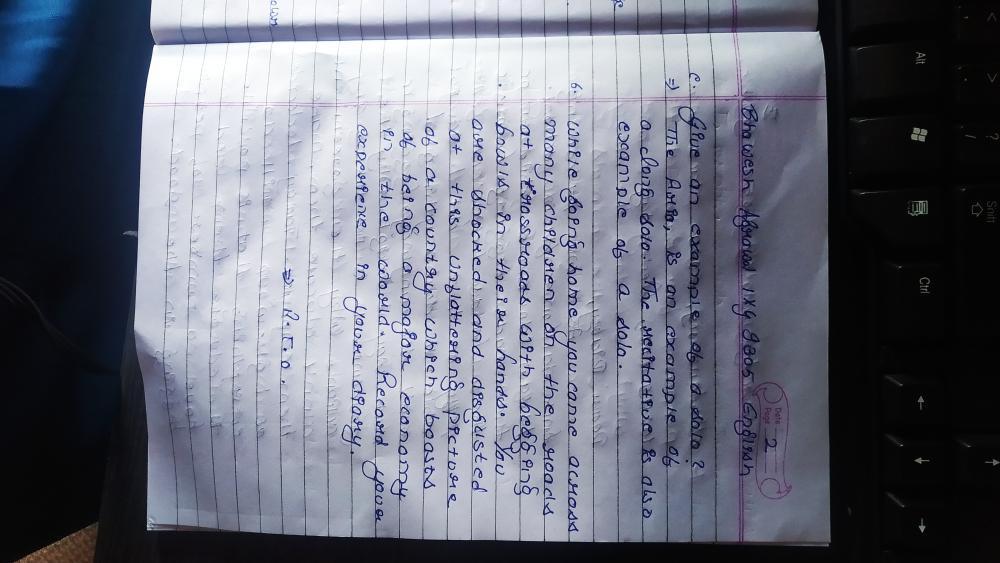 Date
Page 2
Bhawesh Agrawal IXG 9805 English
c. Give an example of a solo?
⇒ The Aria, is an example of
a long solo. The recitative is also
example of a solo.
6. While going home you came across
many children on the roads
at crossroads with begging
bowls in their hands. You
are shocked and disgusted
at this unflattering picture
of a country which boasts
of being a major economy
in the world. Record your
experience in your diary.
⇒ P.T.O.
Alt
Ctrl
Shift